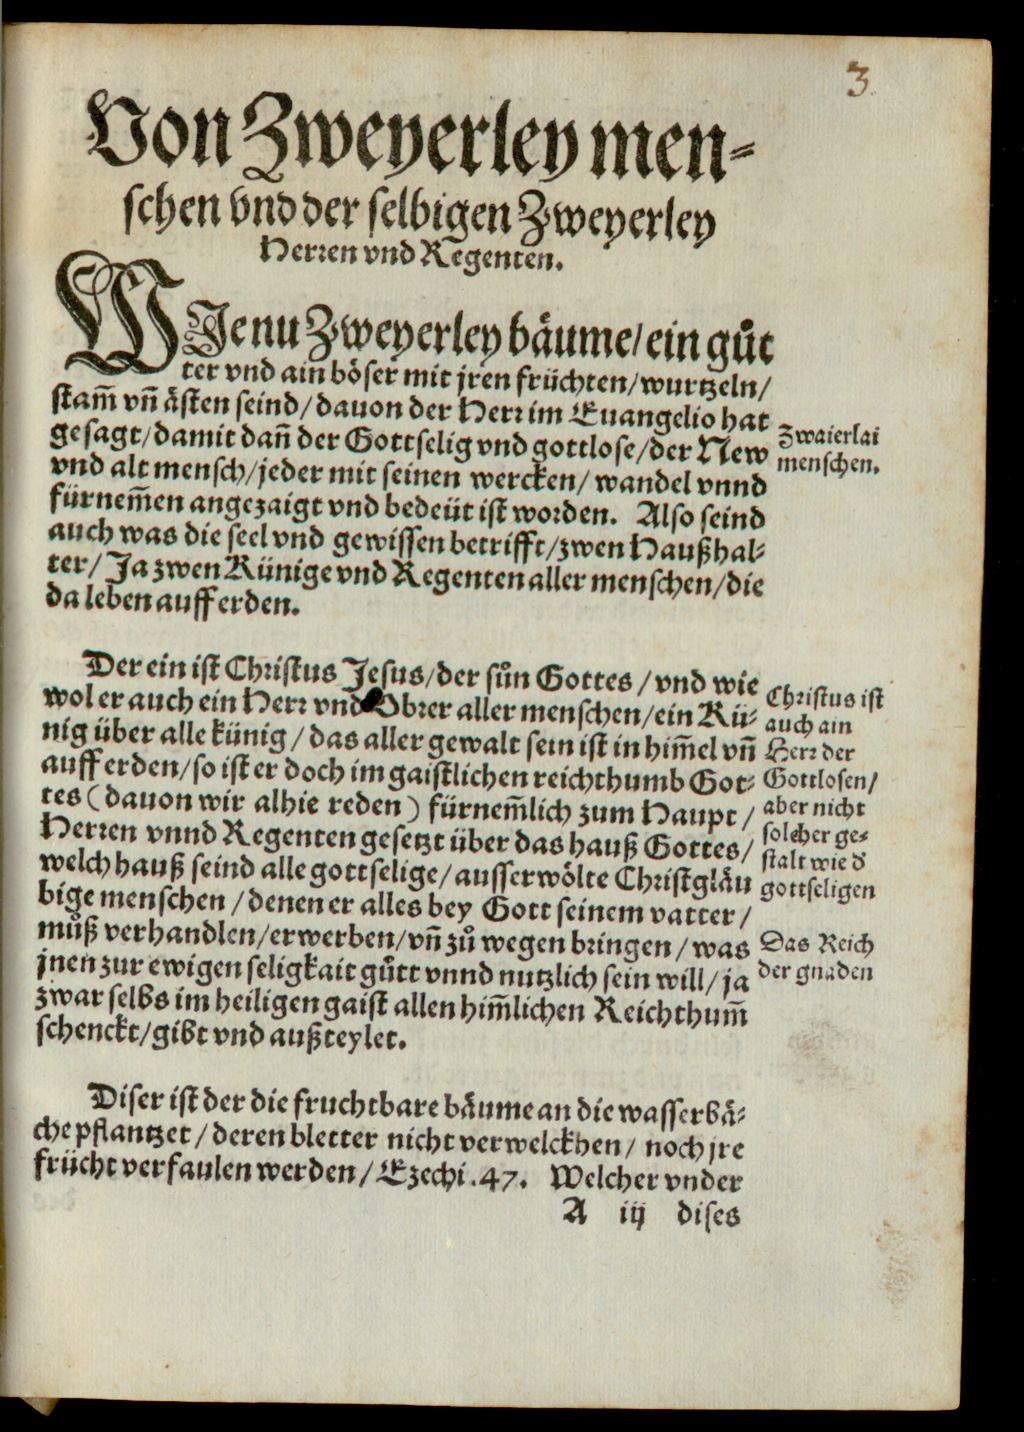 3.
Von Zweyerley men⸗
schen vnd der selbigen Zweyerley
Herren vnd Regenten.
WJe nu Zweyerley bäume/ ein gůt
ter vnd ain böser mit jren früchten/ wurtzeln/
stam̃ vñ ästen seind/ dauon der Herr im Euangelio hat
gesagt/ damit dañ der Gottselig vnd gottlose/ der New
vnd alt mensch/ jeder mit seinen wercken/ wandel vnnd
fürnem̃en angezaigt vnd bedeüt ist worden. Also seind
auch was die seel vnd gewissen betrifft/ zwen Haußhal⸗
ter/ Ja zwen Künige vnd Regenten aller menschen/ die
da leben auff erden.
Zwaierlai
menschen.
Der ein ist Christus Jesus/ der sůn Gottes/ vnd wie
wol er auch ein Herr vnd Obrer aller menschen/ ein Kü⸗
nig über alle künig/ das aller gewalt sein ist in him̃el vñ
auff erden/ so ist er doch im gaistlichen reichthumb Got⸗
tes (dauon wir alhie reden) fürnem̃lich zum Haupt/
Herren vnnd Regenten gesetzt über das hauß Gottes/
welch hauß seind alle gottselige/ ausserwölte Christgläu
bige menschen/ denen er alles bey Gott seinem vatter/
můß verhandlen/ erwerben/ vñ zů wegen bringen/ was
jnen zur ewigen seligkait gůtt vnnd nutzlich sein will/ ja
zwar selbs im heiligen gaist allen him̃lichen Reichthum̃
schenckt/ gibt vnd außteylet.
Christus ist
auch ain
Herr der
Gottlosen/
aber nicht
solcher ge⸗
stalt wie d
gottseligen
Das Reich
der gnaden
Diser ist der die fruchtbare bäume an die wasserbä⸗
che pflantzet/ deren bletter nicht verwelckhen/ noch jre
frücht verfaulen werden/ Ezechi. 47. Welcher vnder
A iij dises